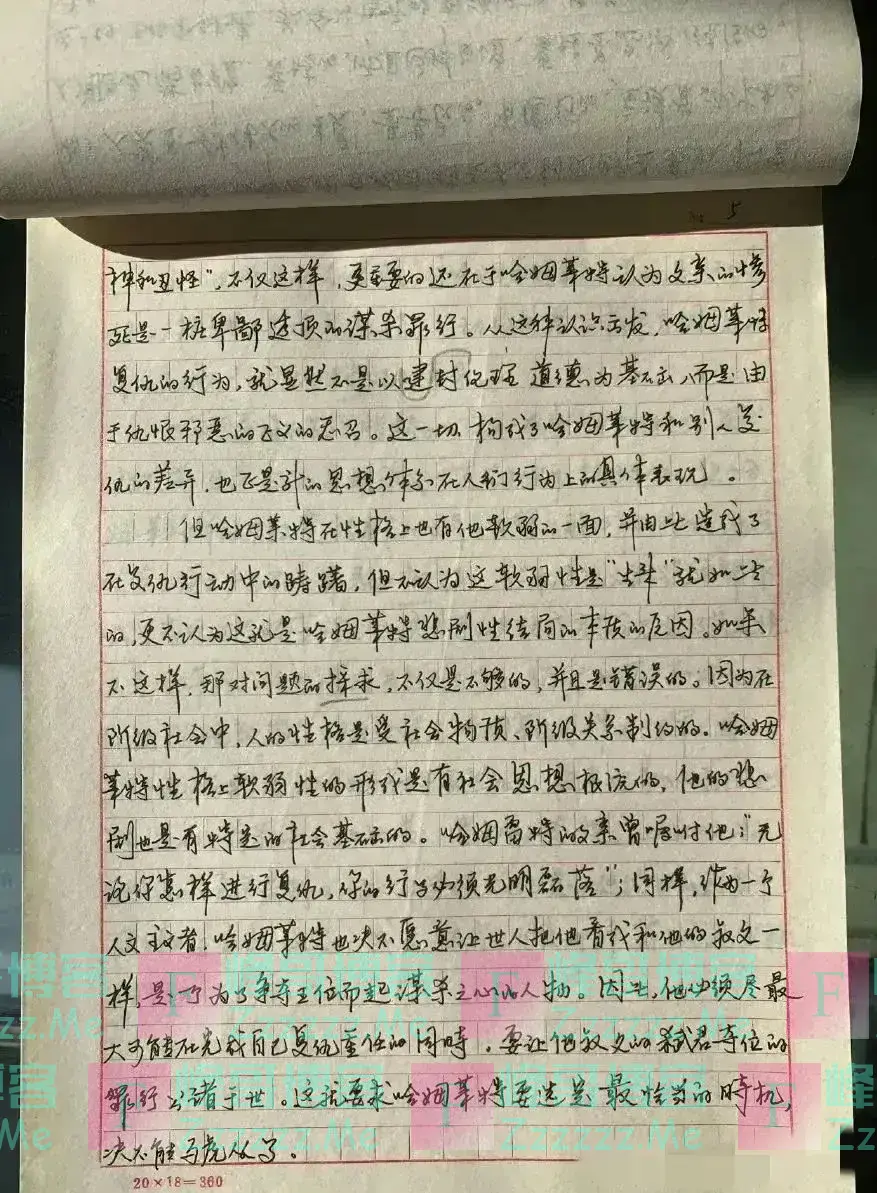 5
神和丑怪”，不仅这样，更重要的还在于哈姆莱特认为父亲的惨
死是一桩卑鄙透顶的谋杀罪行。从这种认识出发，哈姆莱特
复仇的行为，就显然不是以封建伦理道德为基石，而是由
于仇恨邪恶的正义的忍召。这一切构成了哈姆莱特和别人复
仇的差异，也正是的思想体系在人们行为上的具体表现。
但哈姆莱特在性格上也有他软弱的一面，并由此造成了
在复仇行动中的踌躇，但不认为这软弱性是“生来”就如此
的，更不认为这就是哈姆莱特悲剧性结局的本质的原因。如果
不这样，那对问题的探求，不仅是不够的，并且是错误的。因为在
阶级社会中，人的性格是受社会物质、阶级关系制约的。哈姆
莱特性格上软弱性的形成是有社会思想根源的，他的悲
剧也是有特定的社会基石的。哈姆雷特的父亲曾嘱咐他：“无
论你怎样进行复仇，你的行为必须光明磊落”；同样，作为一个
人文主义者，哈姆莱特也决不愿意让世人把他看成和他的叔父一
样，是个为了争夺王位而起谋杀之心的人物。因此，他必须尽最
大可能在完成自己复仇重任的同时，要让他叔父的弑君夺位的
罪行公诸于世。这就要求哈姆莱特要选定最恰当的时机，
决不能马虎从事。
20×18=360
蜂博客
Zzzzz.Me